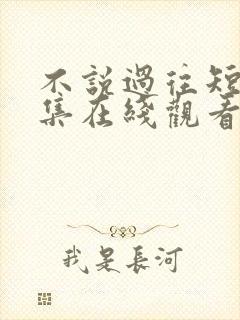 不說過往短
集在綫觀看
我是長河